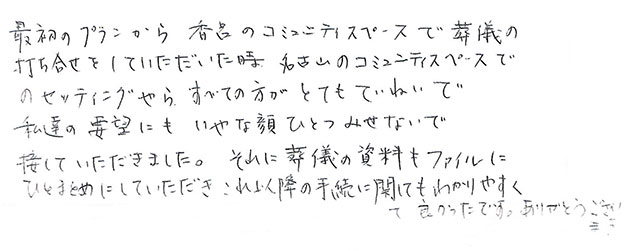 最初のプランから 香呂のコミュニティスペースで葬儀の
打ち合せをしていただいた時 名古山のコミュニティスペースで
のセッティングやら すべての方が とてもていねいで
私達の要望にも いやな顔ひとつみせないで
接していただきました。 それに葬儀の資料もファイルに
ひとまとめにしていただき これ以降の手続に関してもわかりやすく
て 良かったです。ありがとうござい
ます